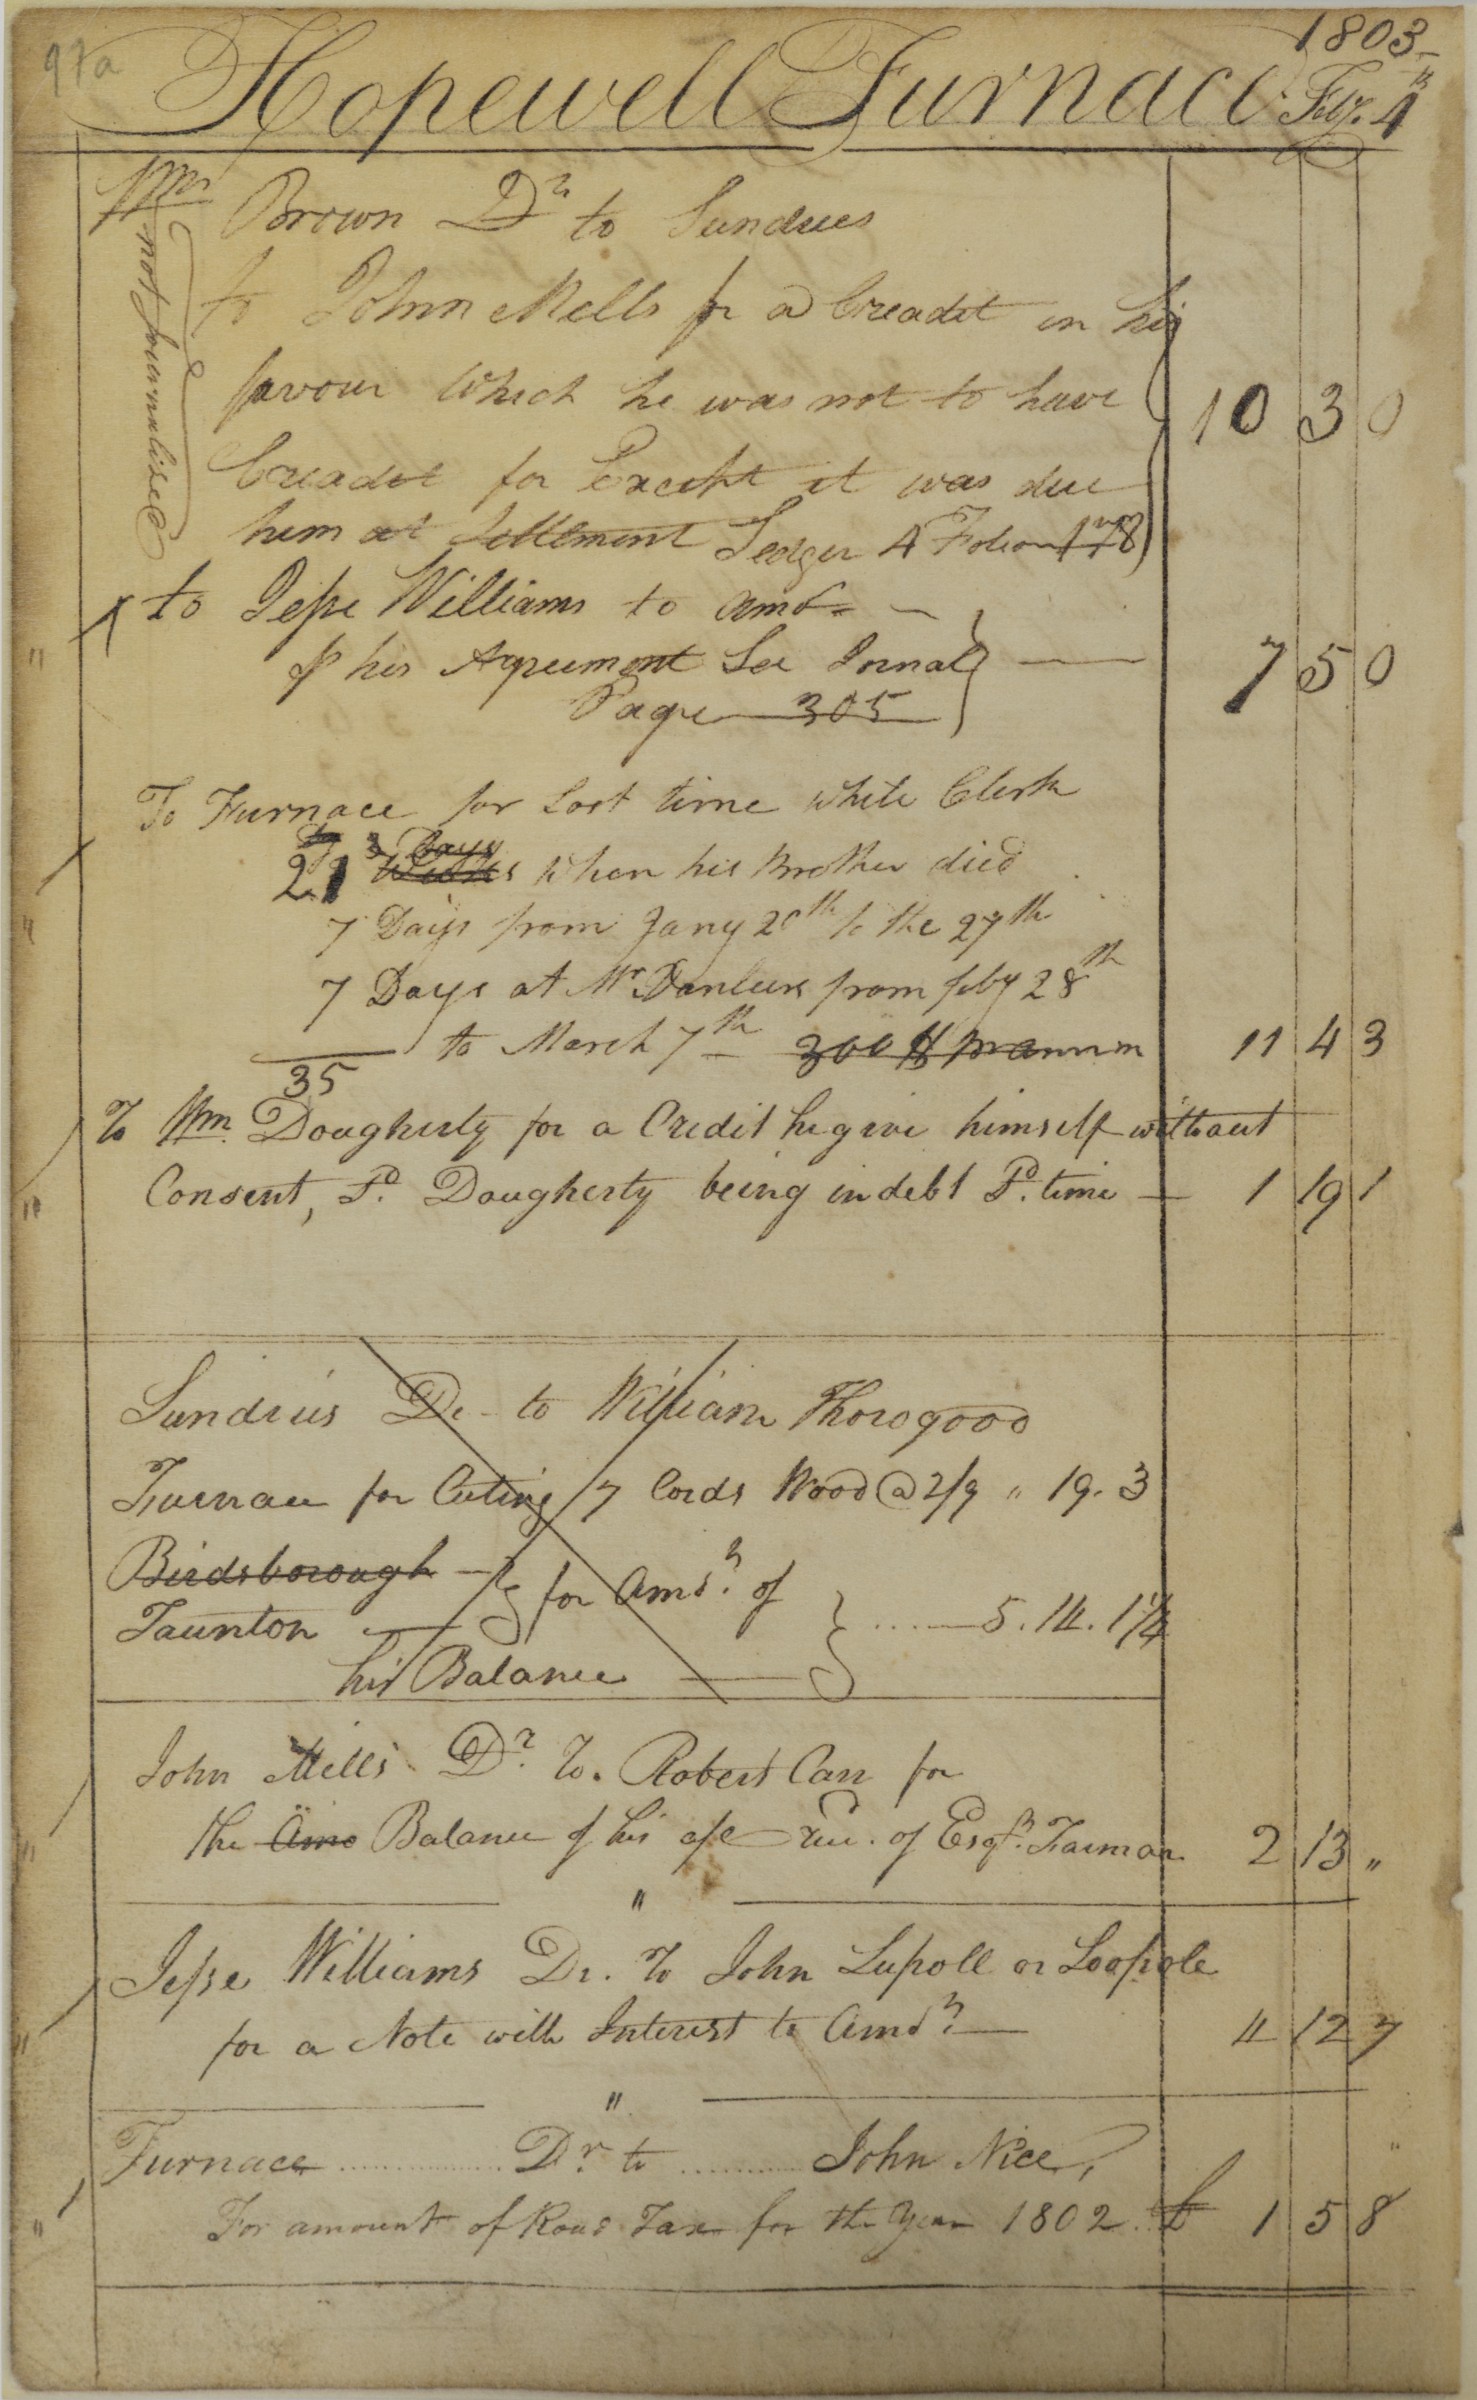 97a
1803
Hopewell Furnace Feby. 4th
Wm Brown Dr to Sundries
not journalised
to John Mells for a Creadit in his
favour Which he was not to have
Creadit for Except it was due
him at Settlement Ledger A Folio 178
10 3 0
to Jesse Williams to amt
p his Agreement See Jornal
Page 305
7 5 0
To Furnace for Lost time while Clerk
21 3 Days Weeks when his Brother died
7 Days from Jany 20th to the 27th
7 Days at Mr Danleurs from feby 28th
to March 7th 300 pr annum 11 4 3
35
To Wm. Dougherty for a Credit he give himself without
Consent, Sd. Dougherty being in debt Sd. time 1 19 1
Sundries Dr to William Thorogood
Furnace for Cuting 7 Cords Wood @ 2/9 " 19. 3
Birdsborough
for Amt. of
Taunton
5. 14. 1 1/4
his Balance
John Mills Dr. To. Robert Carr for
the Amo Balance of his a/c of Esqr. Farmar 2 13 "
"
Jesse Williams Dr. To John Lupoll or Loopole
for a Note with Interest to Amt. 4 12 7
"
Furnace Dr. to John Nice,
For amount of Road Tax for the Year 1802. £ 1 5 8